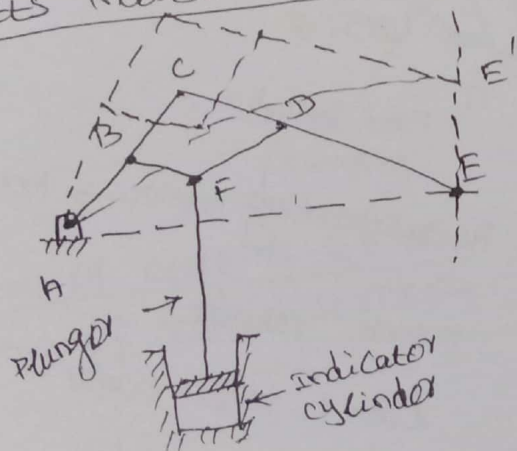 C
B
D
E'
E
F
A
Plunger
Indicator
cylinder